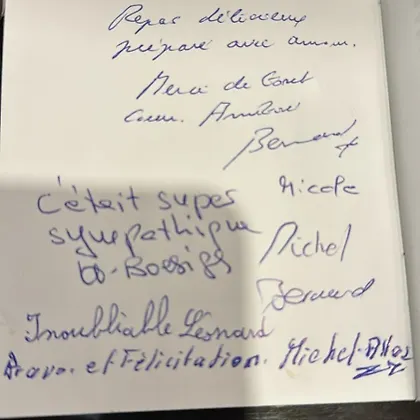 Repas délicieux
préparé avec amour.
Merci de tout
coeur.
Bernard
Nicole
c'était super
sympathique
Michel
Bernard
Inoubliable Léonard
Bravo. et Félicitation. Michel